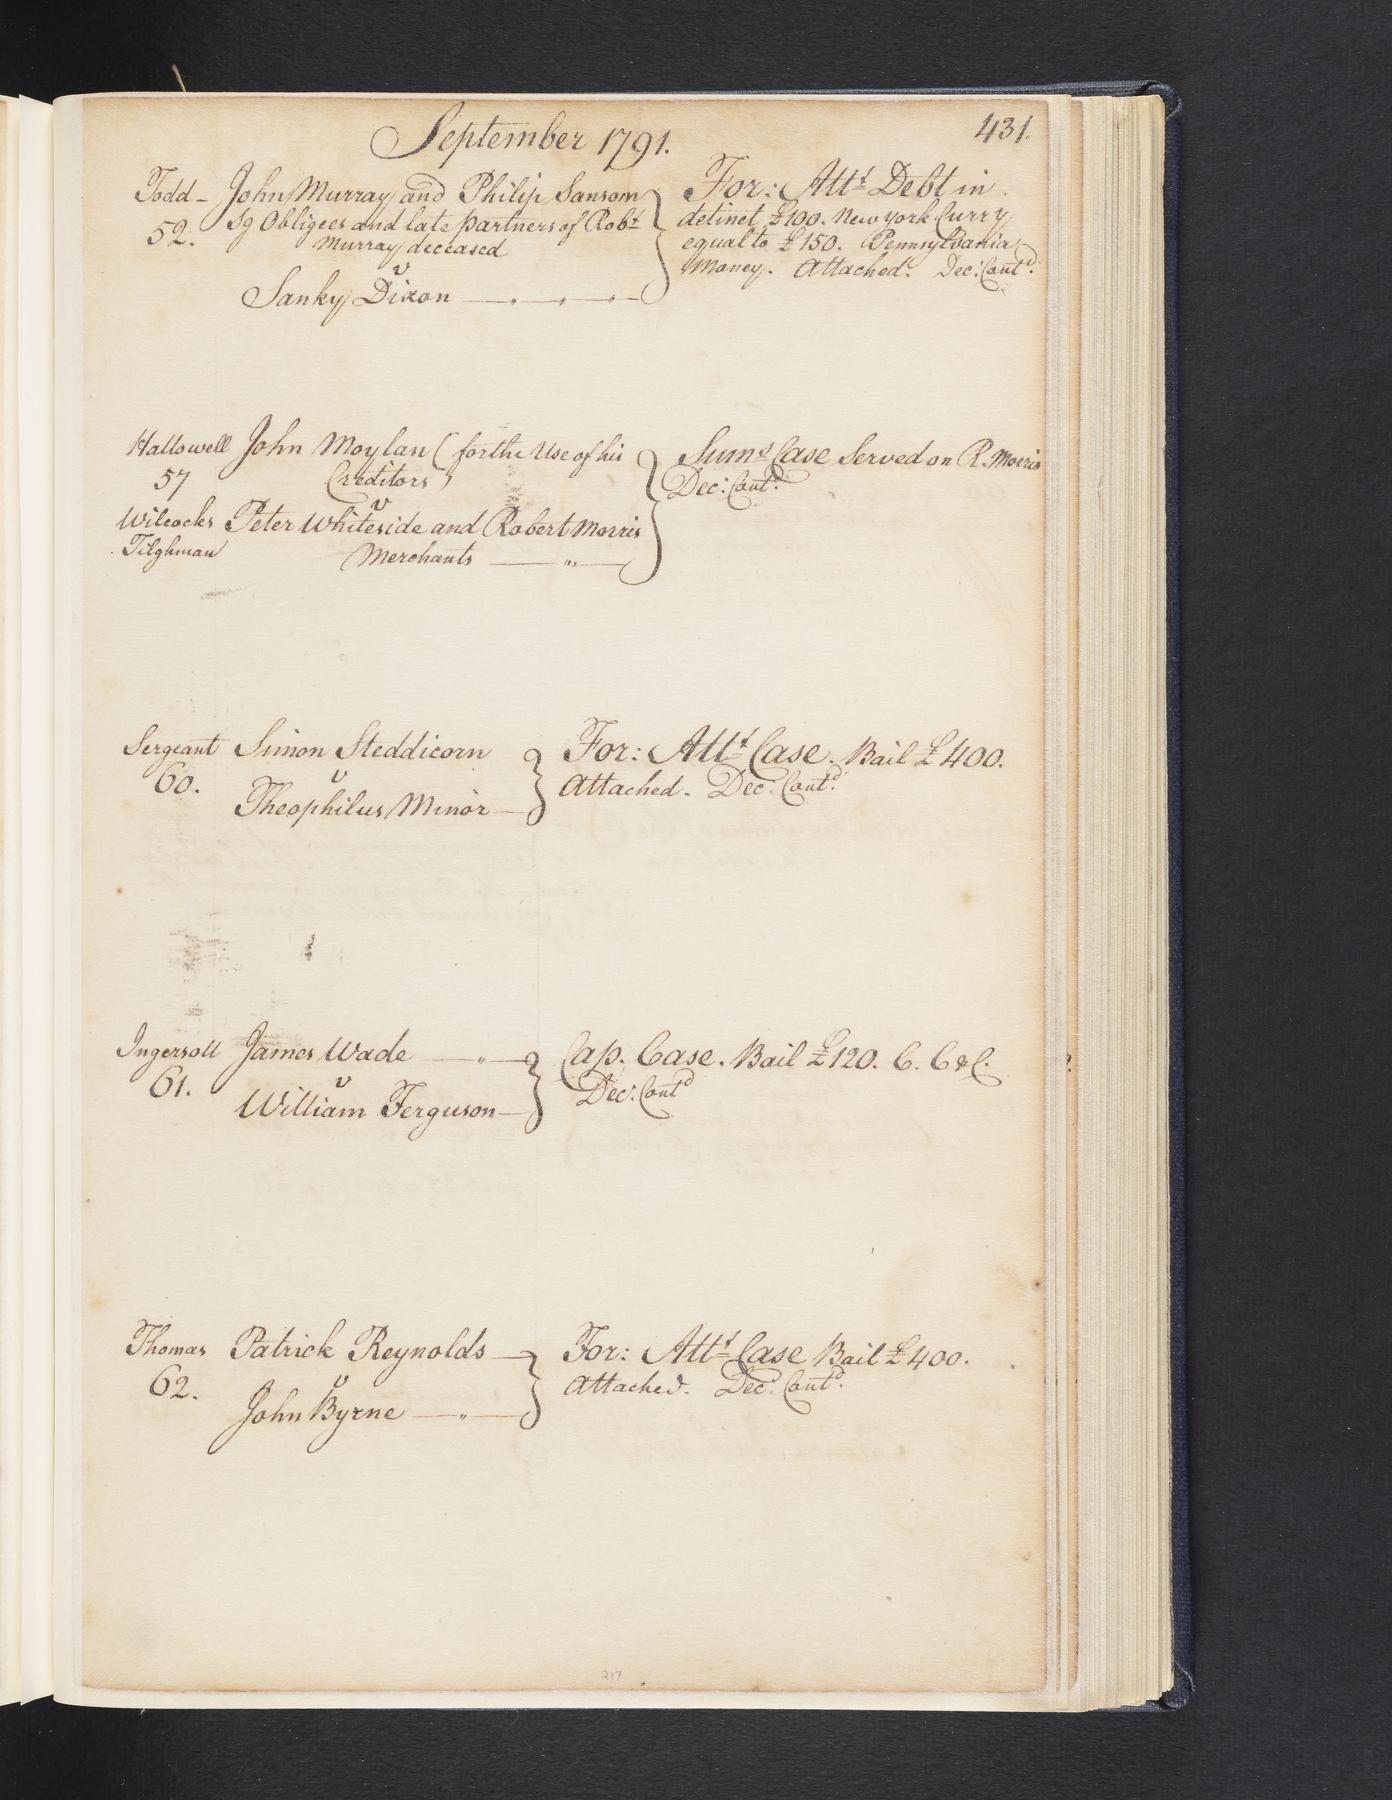 September 1791.
431.
Todd - John Murray and Philip Sansom
52. Sg Obligees and late partners of Robt
Murray deceased
v
Sanky Dixon
For: Attt Debt in
detinet £100. New york Curry
equal to £150. Pennsylvania
Money. Attached. Dec: Contd.
Hallowell John Moylan ( for the Use of his
57 Creditors )
v
Wilcocks Peter Whiteside and Robert Morris
Tilghman Merchants
Sums Case Served on R. Morris
Dec: Contd.
Sergeant Simon Steddicorn
60. v
Theophilus Minor
For: Attt Case. Bail £400.
Attached. Dec: Contd.
Ingersoll James Wade
61. v
William Ferguson
Cap. Case. Bail £120. C. C & C.
Dec: Contd
Thomas Patrick Reynolds
62. v
John Byrne
For: Attt Case Bail £400.
Attached. Dec: Contd.
217